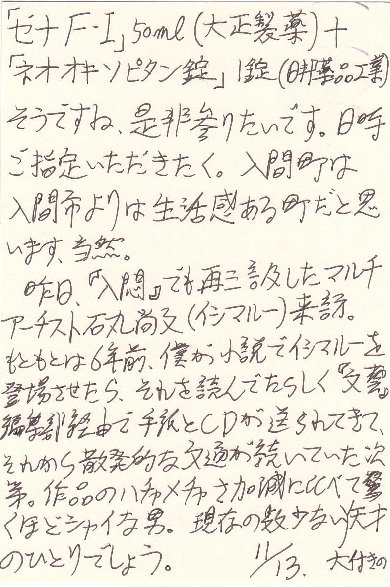 「ゼナF-I」50ml(大正製薬)+
「ネオオキソピタン錠」1錠(日邦薬品工業)
そうですね、是非参りたいです。日時
ご指定いただきたく。入間町は
入間市よりは生活感ある町だと思
います、当然。
昨日、『入悶』でも再三言及したマルチ
アーチスト石丸尚文(イシマルー)来訪。
もともとは6年前、僕が小説でイシマルーを
登場させたら、それを読んでたらしく『文藝』
編集部経由で手紙とCDが送られてきて、
それから散発的な文通が続いていた次
第。作品のハチャメチャさ加減に比べて驚
くほどシャイな男。現在の数少ない天才
のひとりでしょう。 11/13. 大付きの